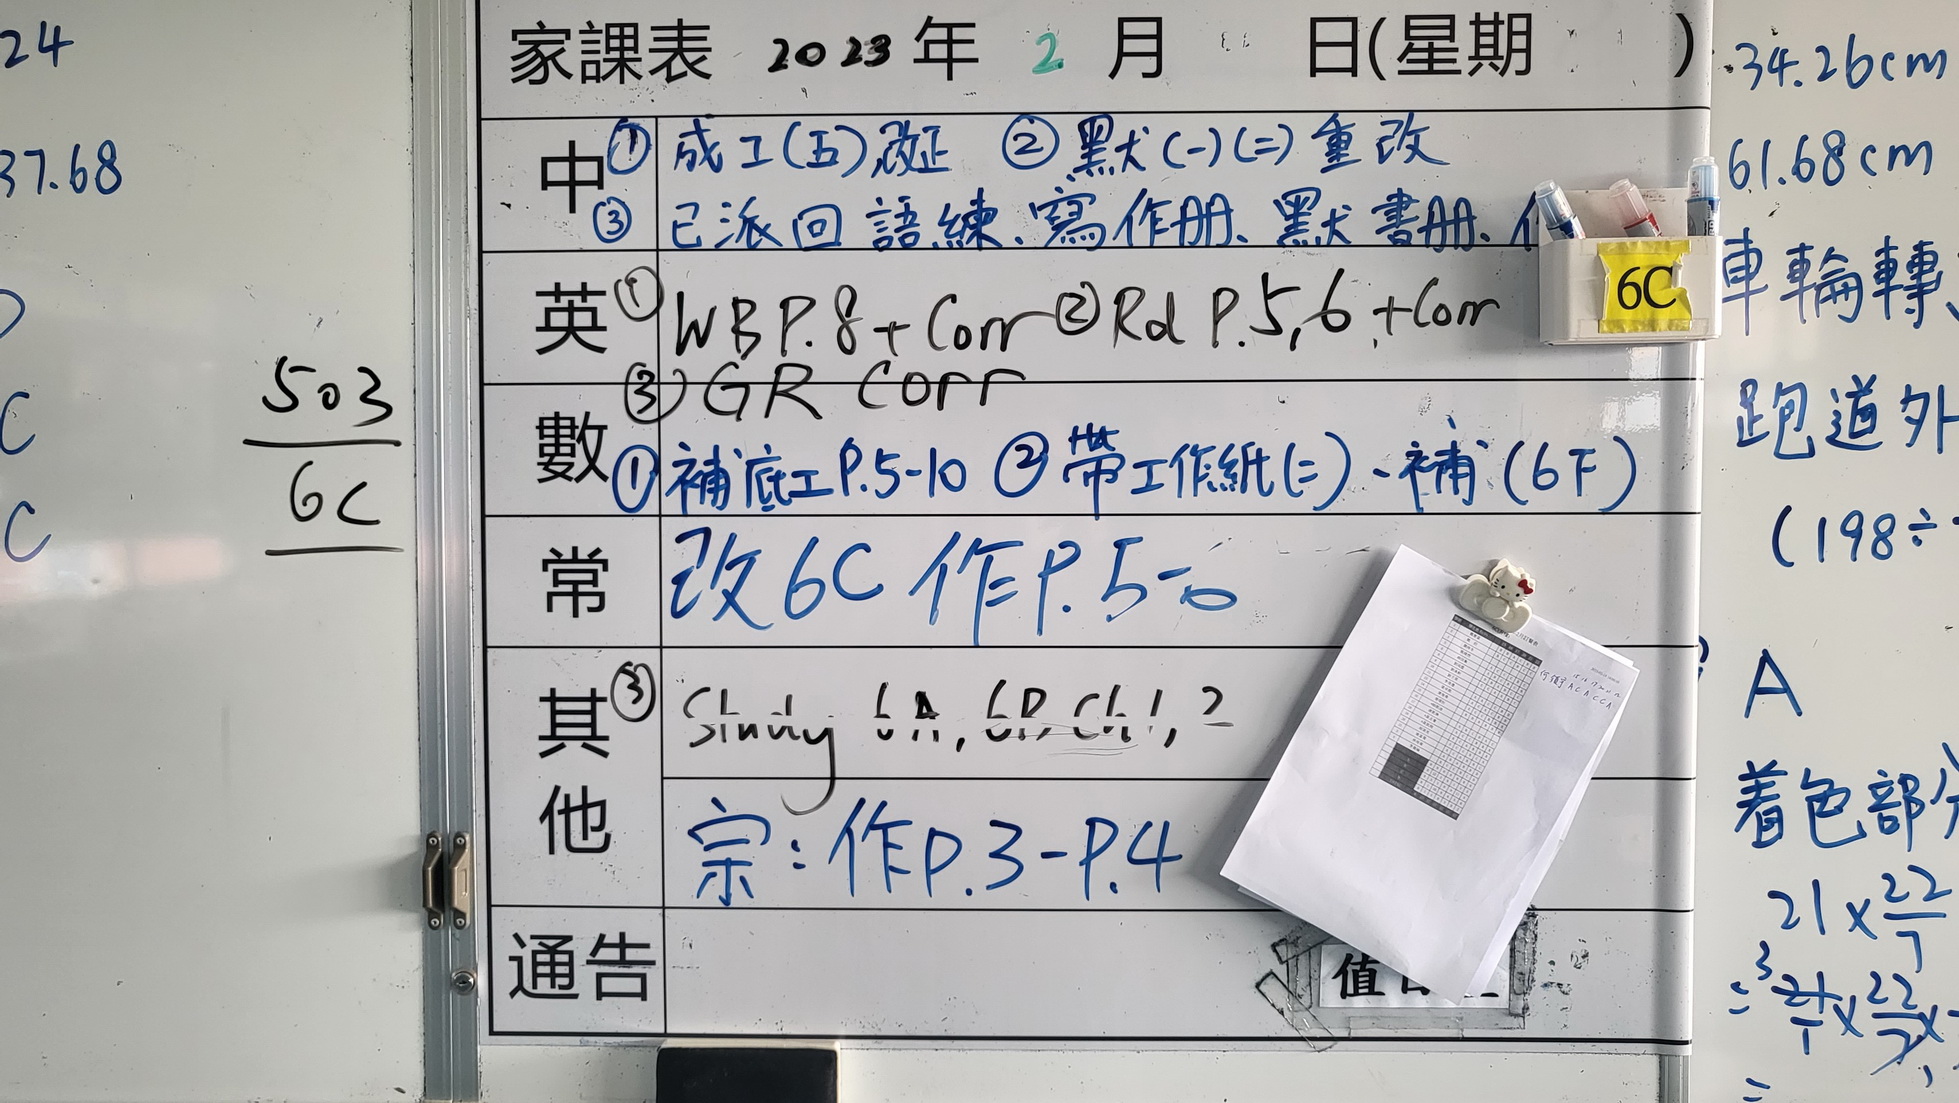 24
37.68
C
C
503
6C
家課表 2023年 2 月 日(星期 )
中 ① 成工(五)改正 ② 默(一)(二)重改
③ 已派回語練、寫作册、默書册、
英 ① WB P.8 + Corr ② Rd P.5,6 + Corr
③ GR Corr
數 ① 補底工P.5-10 ② 帶工作紙(二)、補(6下)
常 改6C 作P.5-6
其他 ③ Study 6A, 6B Ch1, 2
宗:作P.3-P.4
通告
值
6C
34.26cm
61.68cm
車輪轉
跑道外
(198÷
A
着色部分
21×22/7
=³21/1×22/7×
=